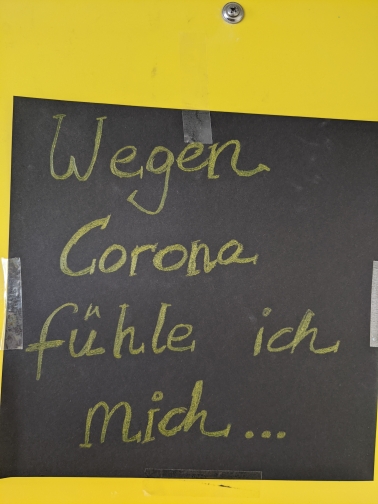 Wegen
Corona
fühle ich
mich...